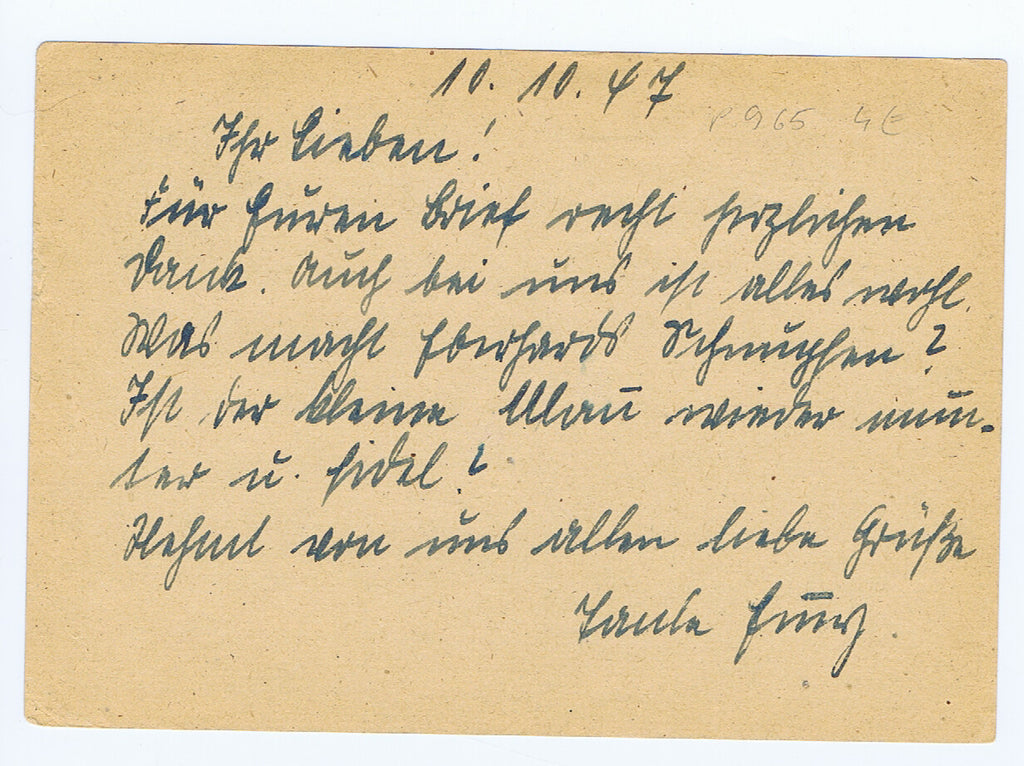 10. 10. 47
P 965 4E
Ihr Lieben!
Für Euren Brief recht herzlichen
Dank. Auch bei uns ist alles wohl.
Was macht Eberhards Schnupfen?
Ist der kleine Mañ wieder mun-
ter u. fidel?
Nehmt von uns allen liebe Grüße
Tante